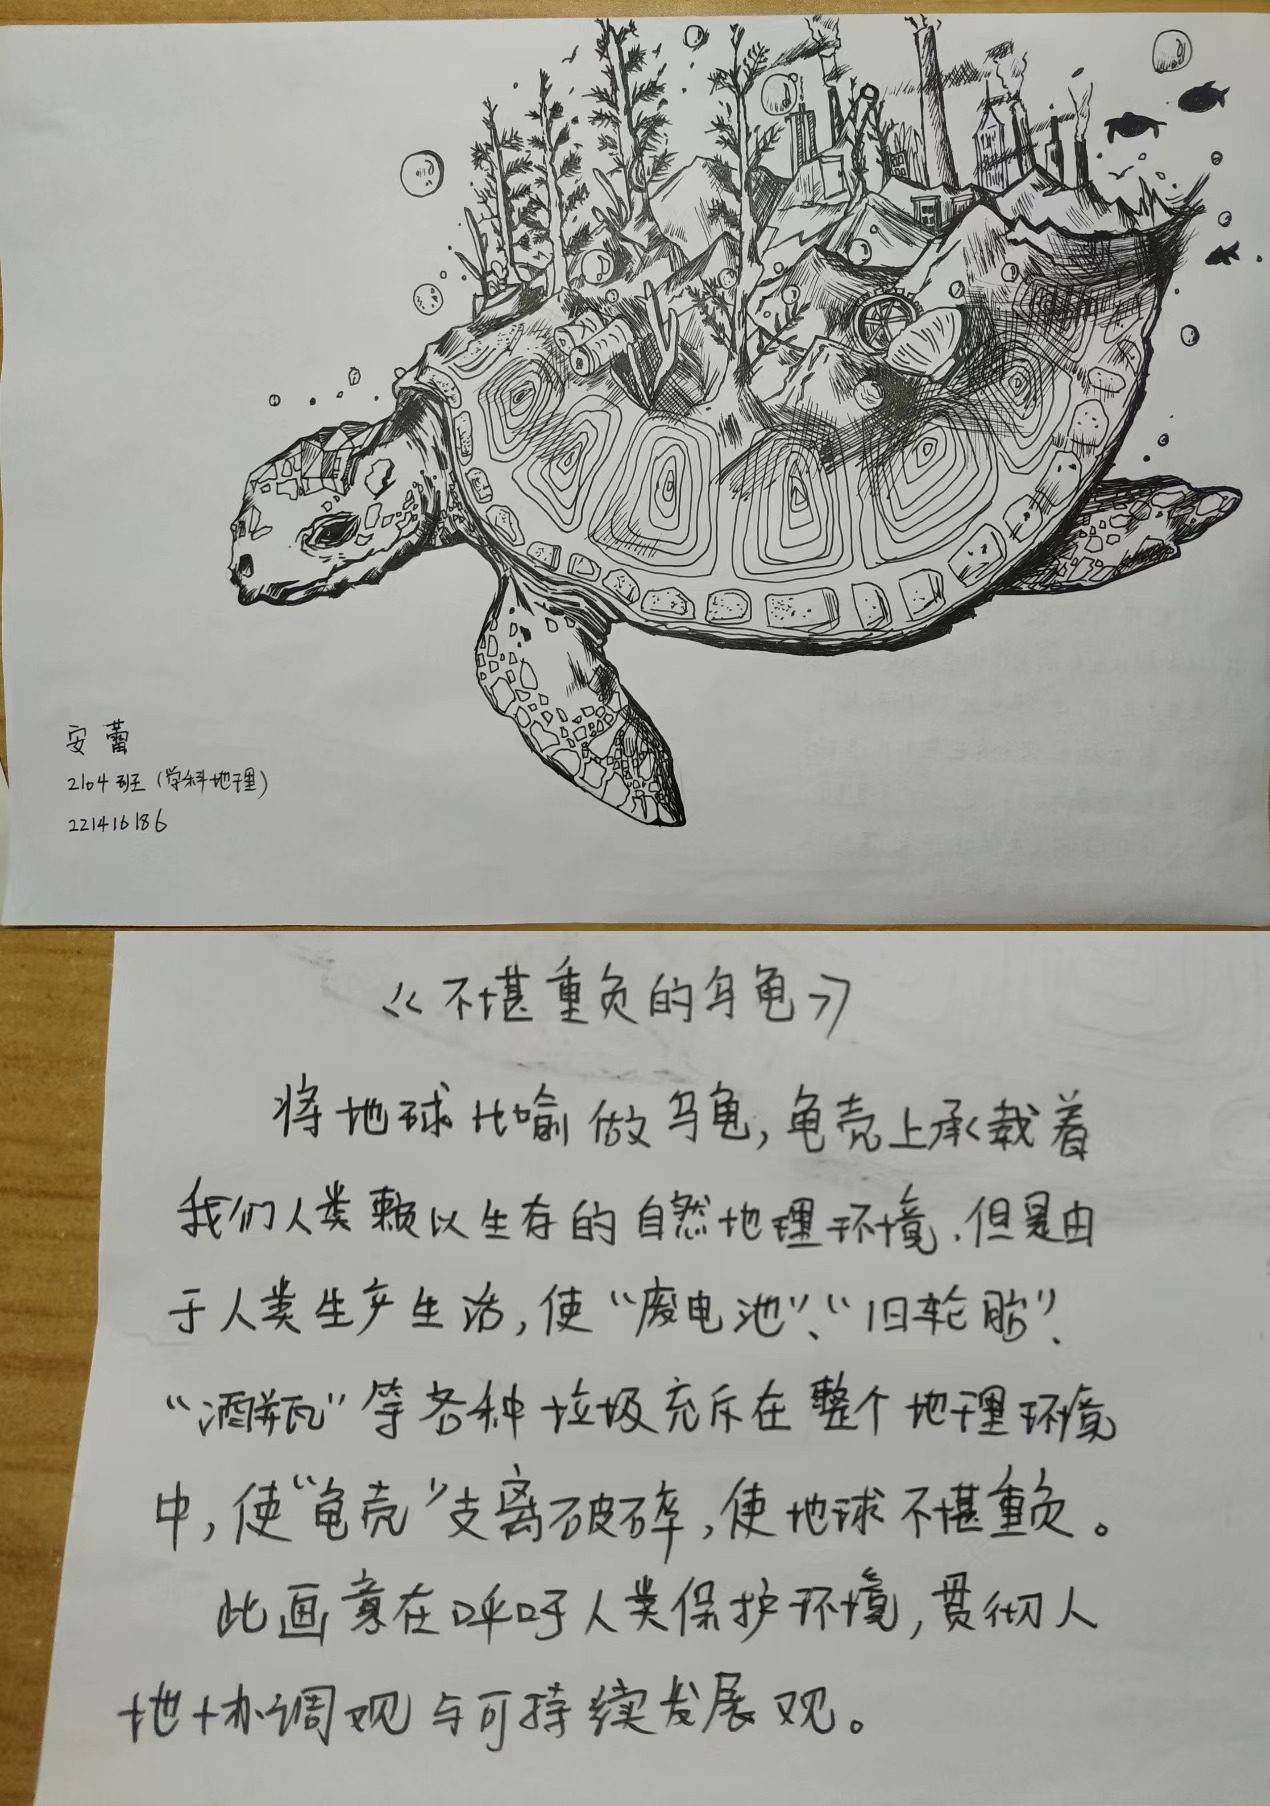 安蕾
2104班(学科地理)
221416186
《不堪重负的乌龟》
将地球比喻做乌龟,龟壳上承载着
我们人类赖以生存的自然地理环境,但是由
于人类生产生活,使“废电池”、“旧轮胎”、
“酒瓶瓦”等各种垃圾充斥在整个地理环境
中,使“龟壳”支离破碎,使地球不堪重负。
此画意在呼吁人类保护环境,贯彻人
地协调观与可持续发展观。